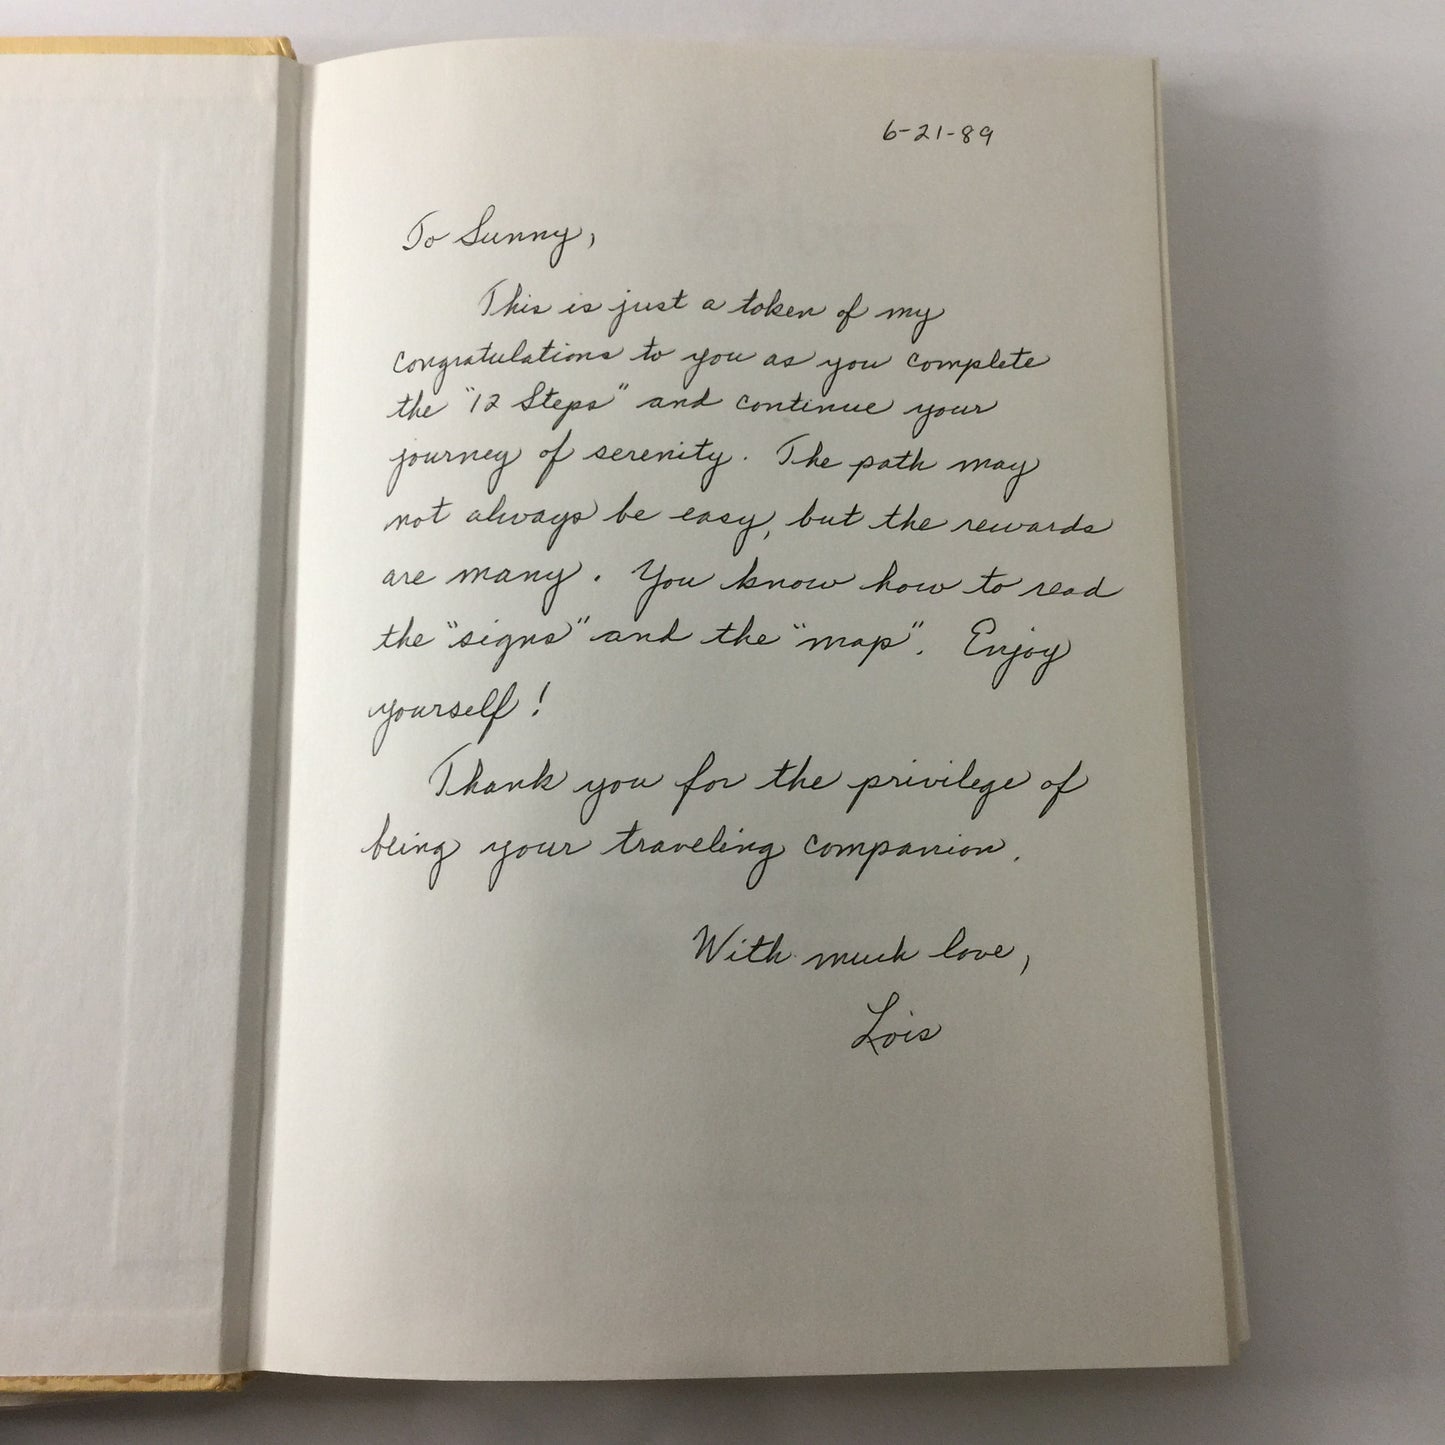 6-21-89
To Sunny,
This is just a token of my
congratulations to you as you complete
the "12 Steps" and continue your
journey of serenity. The path may
not always be easy, but the rewards
are many. You know how to read
the "signs" and the "map". Enjoy
yourself!
Thank you for the privilege of
being your traveling companion.
With much love,
Lois